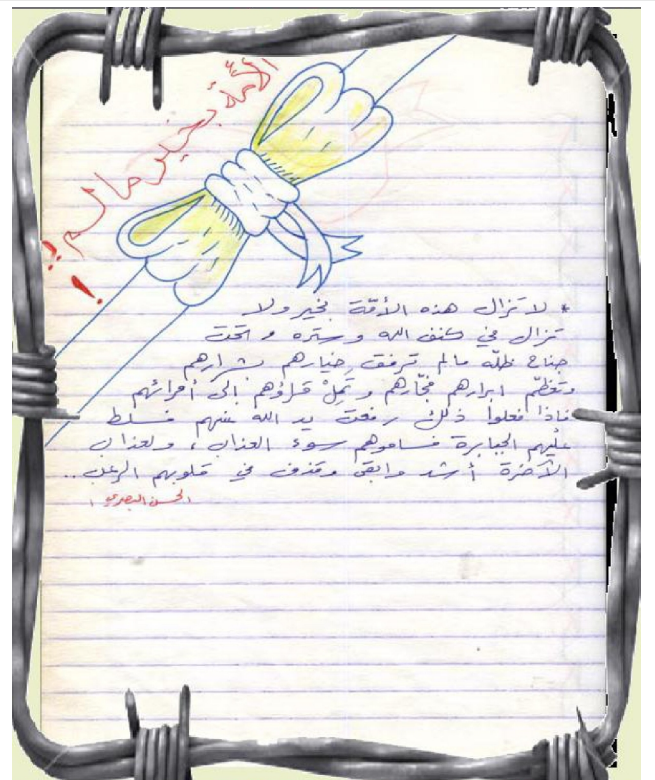 الأمة بخير ما لم !!
* لا تزال هذه الأمّة بخير ولا
تزال في كنف الله وستره وتحت
جناح ظلّه مالم ترفق خيارهم بشرارهم
وتعظّم ابرارهم فجّارهم وتمل قراؤهم إلى أمرائهم
فاذا فعلوا ذلك رفعت يد الله عنهم فسلط
عليهم الجبابرة فساموهم سوء العذاب ، ولعذاب
الآخرة أشد وابقى وقذف في قلوبهم الرعب ..
الحسن البصري